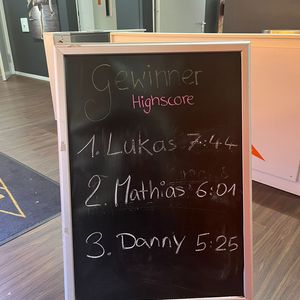 Gewinner
Highscore
1. Lukas 7:44
2. Mathias 6:01
3. Danny 5:25